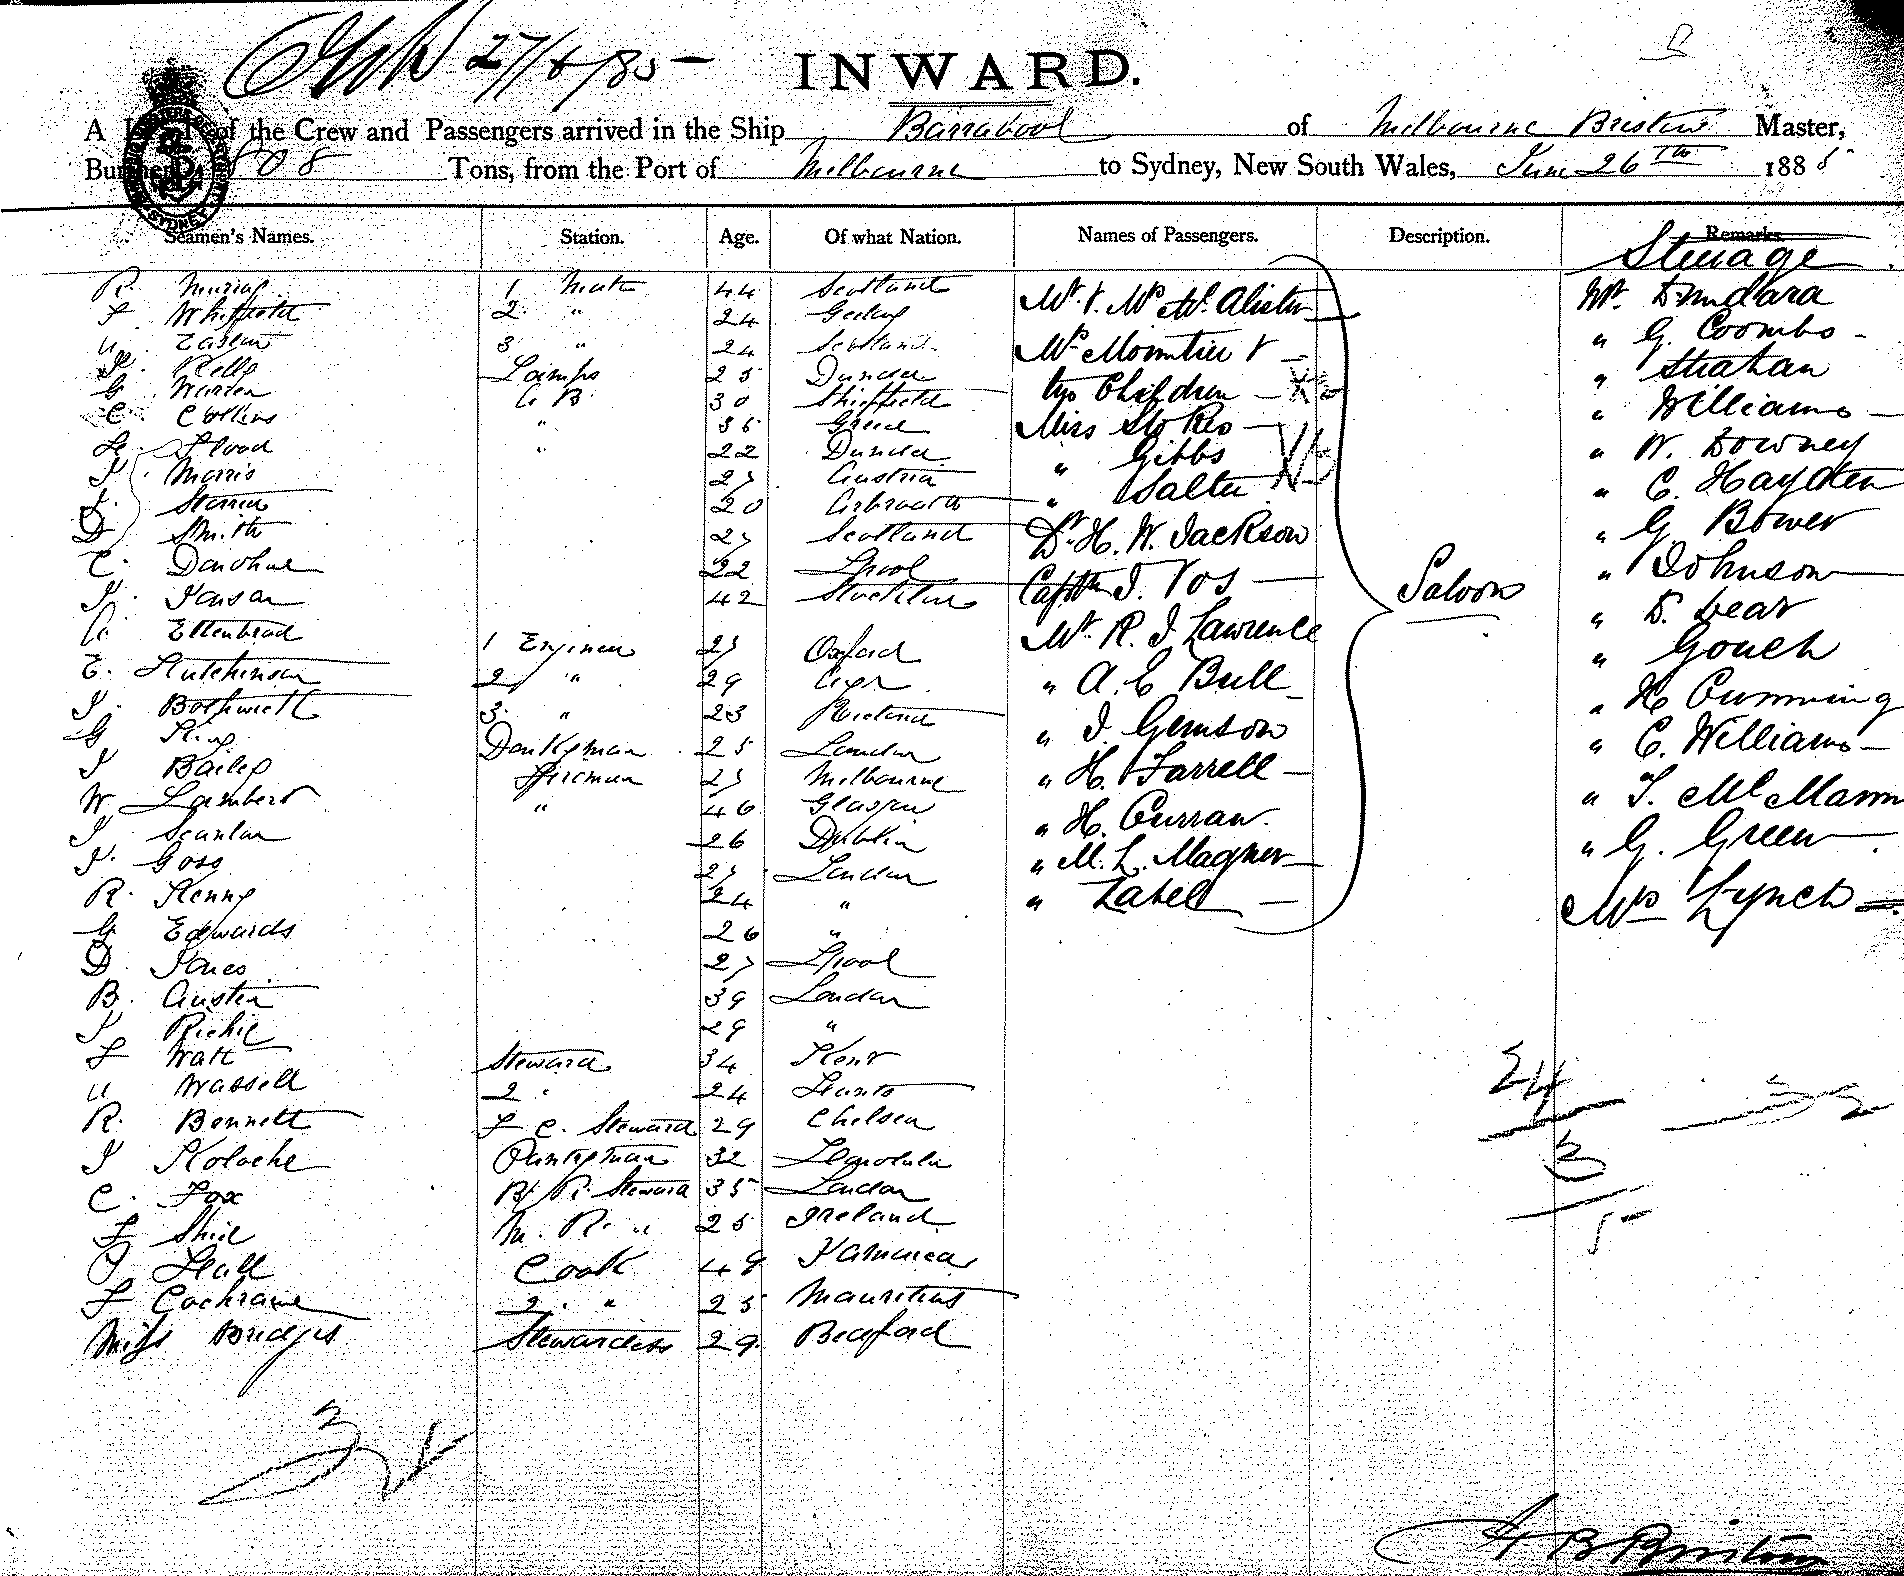 27/6/85
INWARD.
A List of the Crew and Passengers arrived in the Ship Barrabool of Melbourne Bristow Master,
Burthen 808 Tons, from the Port of Melbourne to Sydney, New South Wales, June 26th 1885
Seamen's Names. Station. Age. Of what Nation. Names of Passengers. Description. Remarks
Steerage
R. Murray 1 Mate 44 Scotland Mr. & Mrs McAlister Mr.
F Whiffield 2 " 24 Geelong " G. Coombs
3 " 24 Scotland Mrs Mountier & " Strahan
Kelly Lamps 25 Dundee two Children " Williams
G Warden A B 30 Sheffield Miss Stokes " W. Downey
C Collins " 36 Greece " Gibbs " C. Hayden
Flood " 22 Dundee " Salter " G Bower
J. Morris 27 Austria Dr. H. W. Jackson " Johnson
20 Arbroath Captn J. Vos " D. Lear
D Smith 27 Scotland Mr. R. J. Lawrence " Gouch
C. Donohue 22 Lpool " A. E Bull " H Cumming
J. 42 Stockton " J. Gemson " C. Williams
1 Engineer 27 Oxford " H. Farrell " T. McMann
E. Hutchinson 2 " 29 " H. Curran " G. Green
J. Bothwell 3 " 23 " M. L. Magner Mrs Lynch
G King Donkyman 25 London " Zabel
J Bailey Fireman 27 Melbourne Saloon
W. Lambert " 46 Glasgow
J Scanlan 26 Dublin
J. Goss 27 London
R. Kenny 24 "
G Edwards 26 "
D. Jones 27 Lpool
B. Austin 39 London
J Richie 29 "
F Watt Steward 34 Kent
Wassell 2 " 24 Hants
R. Bennett F C. Steward 29 Chelsea
J Kolache Pantryman 32 Honolulu
C. Fox B. R. Steward 35 London
F Shiel M. R. " 25 Ireland
J Hall Cook 48 Jamaica
F Cochrane 2. " 25 Mauritius
Miss Bridges Stewardess 29 Bedford
24
3
5